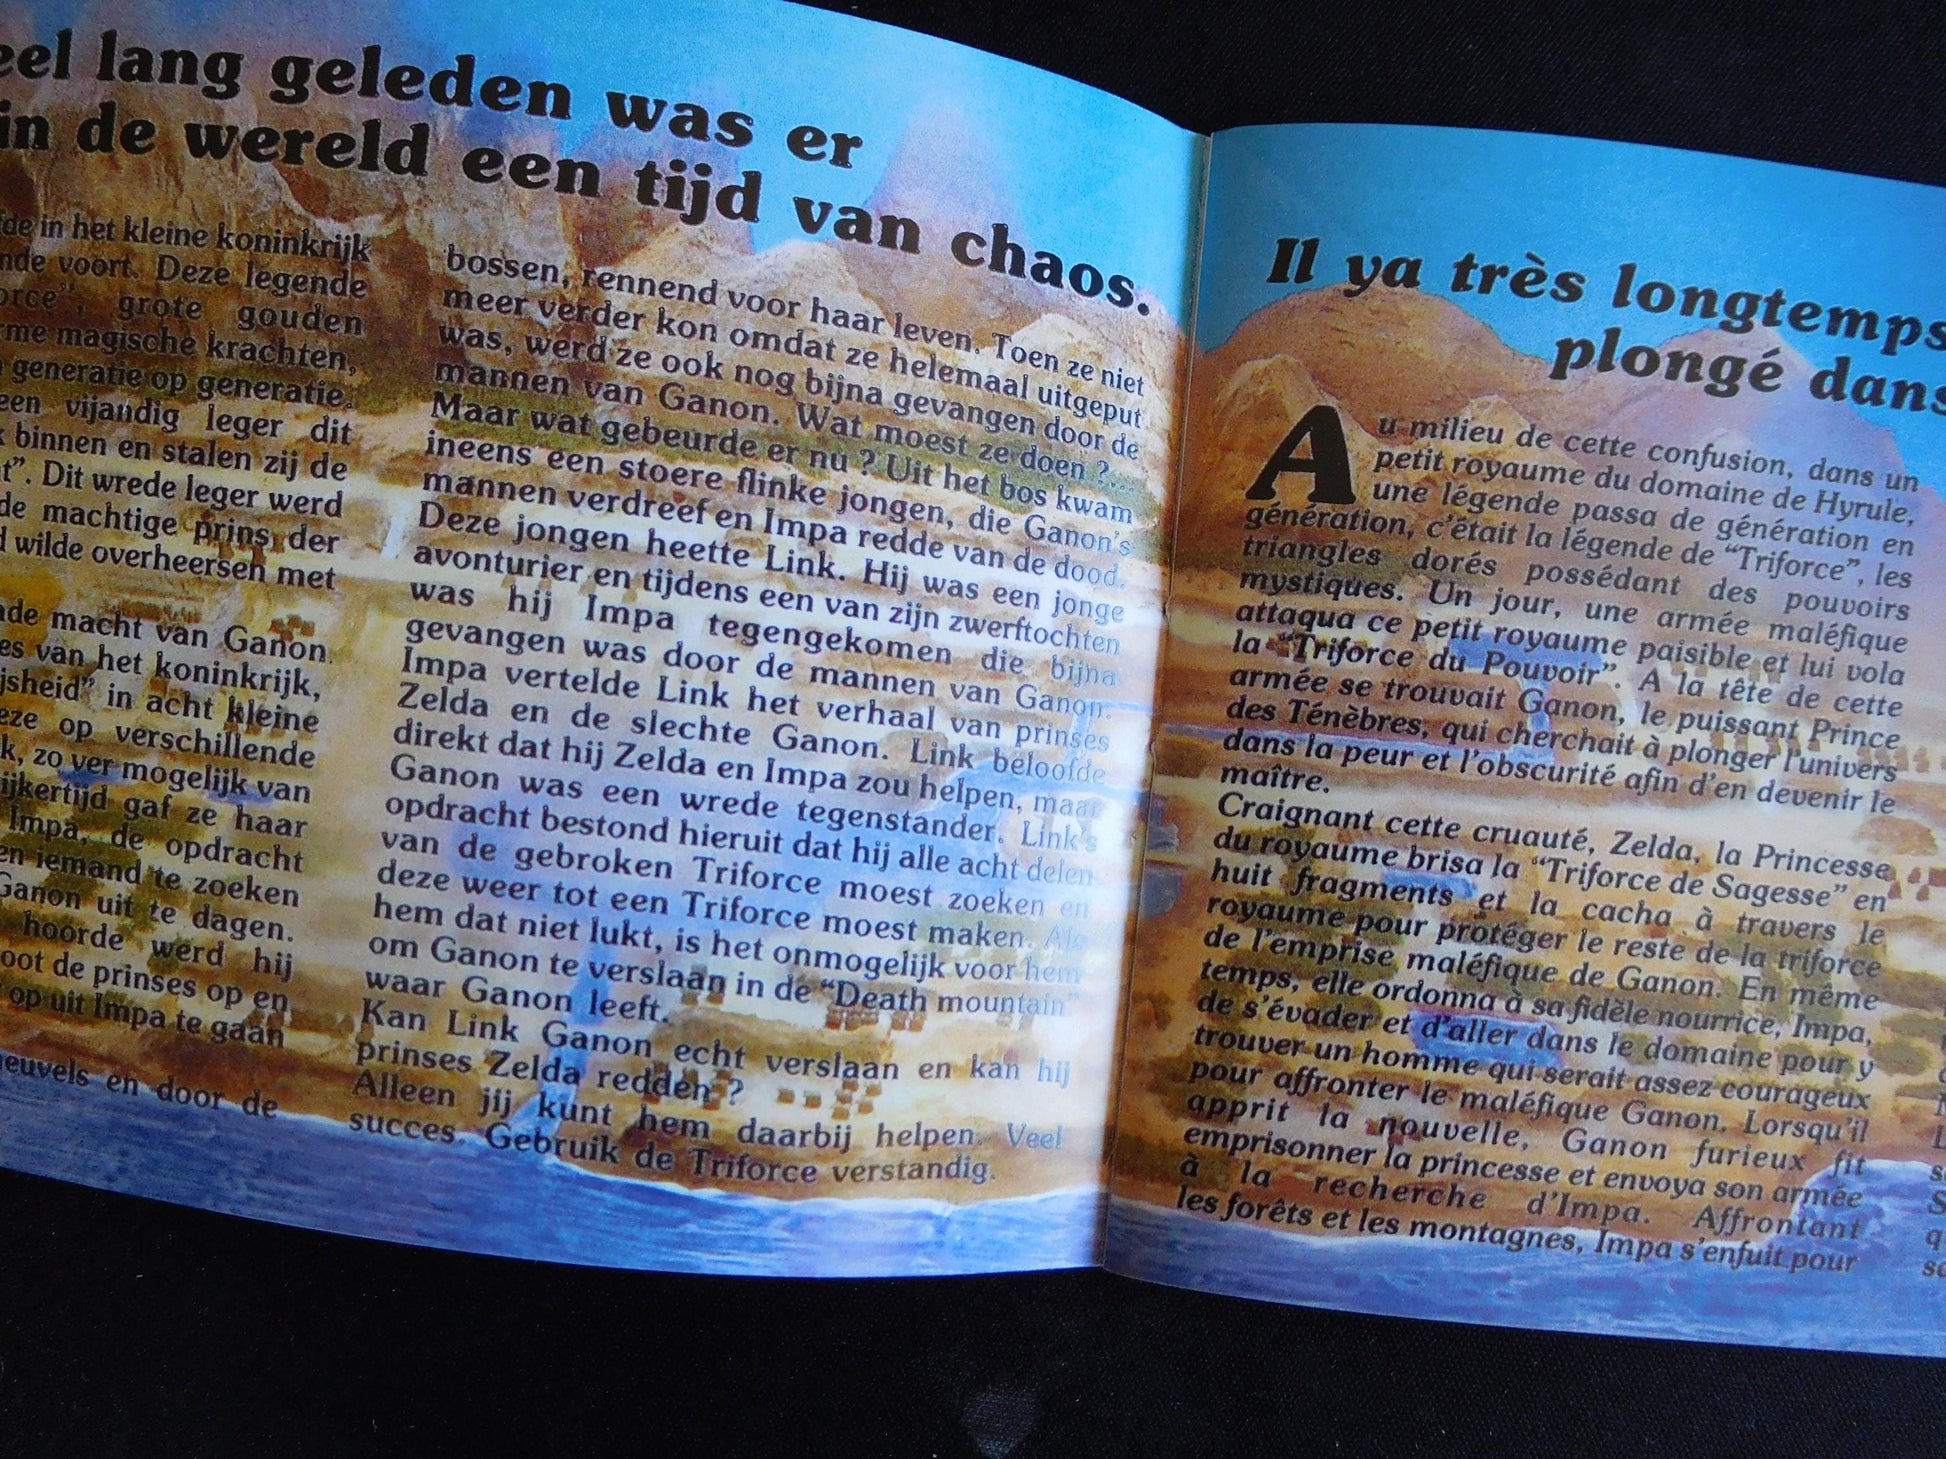 lang geleden was er
in de wereld een tijd van chaos.
in het kleine koninkrijk
voort. Deze legende
grote gouden
magische krachten,
generatie op generatie.
een vijandig leger dit
binnen en stalen zij de
Dit wrede leger werd
de machtige prins der
wilde overheersen met
macht van Ganon.
van het koninkrijk,
in acht kleine
op verschillende
zo ver mogelijk van
gaf ze haar
Impa, de opdracht
iemand te zoeken
Ganon uit te dagen.
hoorde werd hij
de prinses op en
op uit Impa te gaan
en door de
bossen, rennend voor haar leven. Toen ze niet
meer verder kon omdat ze helemaal uitgeput
was, werd ze ook nog bijna gevangen door de
mannen van Ganon. Wat moest ze doen ?....
Maar wat gebeurde er nu ? Uit het bos kwam
ineens een stoere flinke jongen, die Ganon's
mannen verdreef en Impa redde van de dood.
Deze jongen heette Link. Hij was een jonge
avonturier en tijdens een van zijn zwerftochten
was hij Impa tegengekomen die bijna
gevangen was door de mannen van Ganon.
Impa vertelde Link het verhaal van prinses
Zelda en de slechte Ganon. Link beloofde
direkt dat hij Zelda en Impa zou helpen, maar
Ganon was een wrede tegenstander. Link's
opdracht bestond hieruit dat hij alle acht delen
van de gebroken Triforce moest zoeken en
deze weer tot een Triforce moest maken. Als
hem dat niet lukt, is het onmogelijk voor hem
om Ganon te verslaan in de “Death mountain”
waar Ganon leeft.
Kan Link Ganon echt verslaan en kan hij
prinses Zelda redden ?
Alleen jij kunt hem daarbij helpen. Veel
succes. Gebruik de Triforce verstandig.
Il ya très longtemps
plongé dans
Au milieu de cette confusion, dans un
petit royaume du domaine de Hyrule,
une légende passa de génération en
génération, c'était la légende de “Triforce”, les
triangles dorés possédant des pouvoirs
mystiques. Un jour, une armée maléfique
attaqua ce petit royaume paisible et lui vola
la “Triforce du Pouvoir”. A la tête de cette
armée se trouvait Ganon, le puissant Prince
des Ténèbres, qui cherchait à plonger l'univers
dans la peur et l'obscurité afin d'en devenir le
maître.
Craignant cette cruauté, Zelda, la Princesse
du royaume brisa la “Triforce de Sagesse” en
huit fragments et la cacha à travers le
royaume pour protéger le reste de la triforce
de l'emprise maléfique de Ganon. En même
temps, elle ordonna à sa fidèle nourrice, Impa,
de s'évader et d'aller dans le domaine pour y
trouver un homme qui serait assez courageux
pour affronter le maléfique Ganon. Lorsqu'il
apprit la nouvelle, Ganon furieux fit
emprisonner la princesse et envoya son armée
à la recherche d'Impa. Affrontant
les forêts et les montagnes, Impa s'enfuit pour